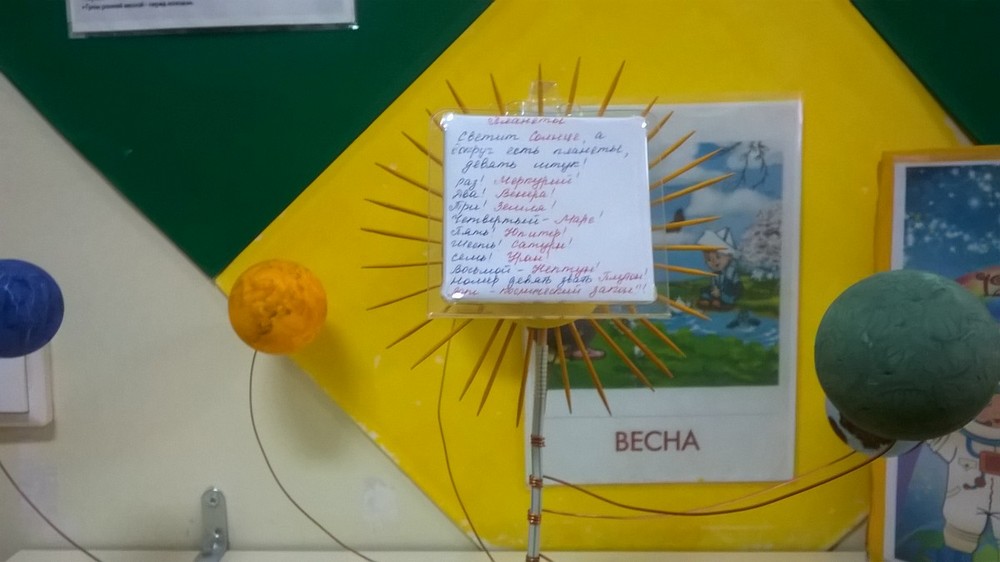 «Гром ранней весной - перед холодом».
Планеты
Светит Солнце, а
вокруг есть планеты,
девять штук!
Раз! Меркурий!
Два! Венера!
Три! Земля!
Четвертый - Марс!
Пять! Юпитер!
Шесть! Сатурн!
Семь! Уран!
Восьмой - Нептун!
Номер девять звать Плутон!
- космический закон!!!
ВЕСНА